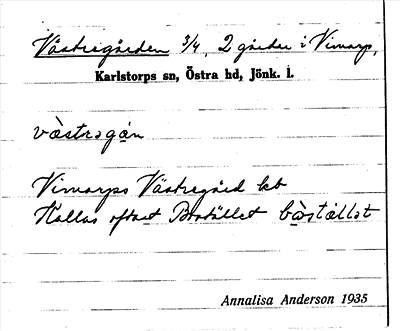 Västregården 3/4, 2 gårdar i Vimarp,
Karlstorps sn, Östra hd, Jönk. l.
vàstrəgán
Vimarps Västregård kb
Kallas oftast Bostället bòstället
Annalisa Anderson 1935